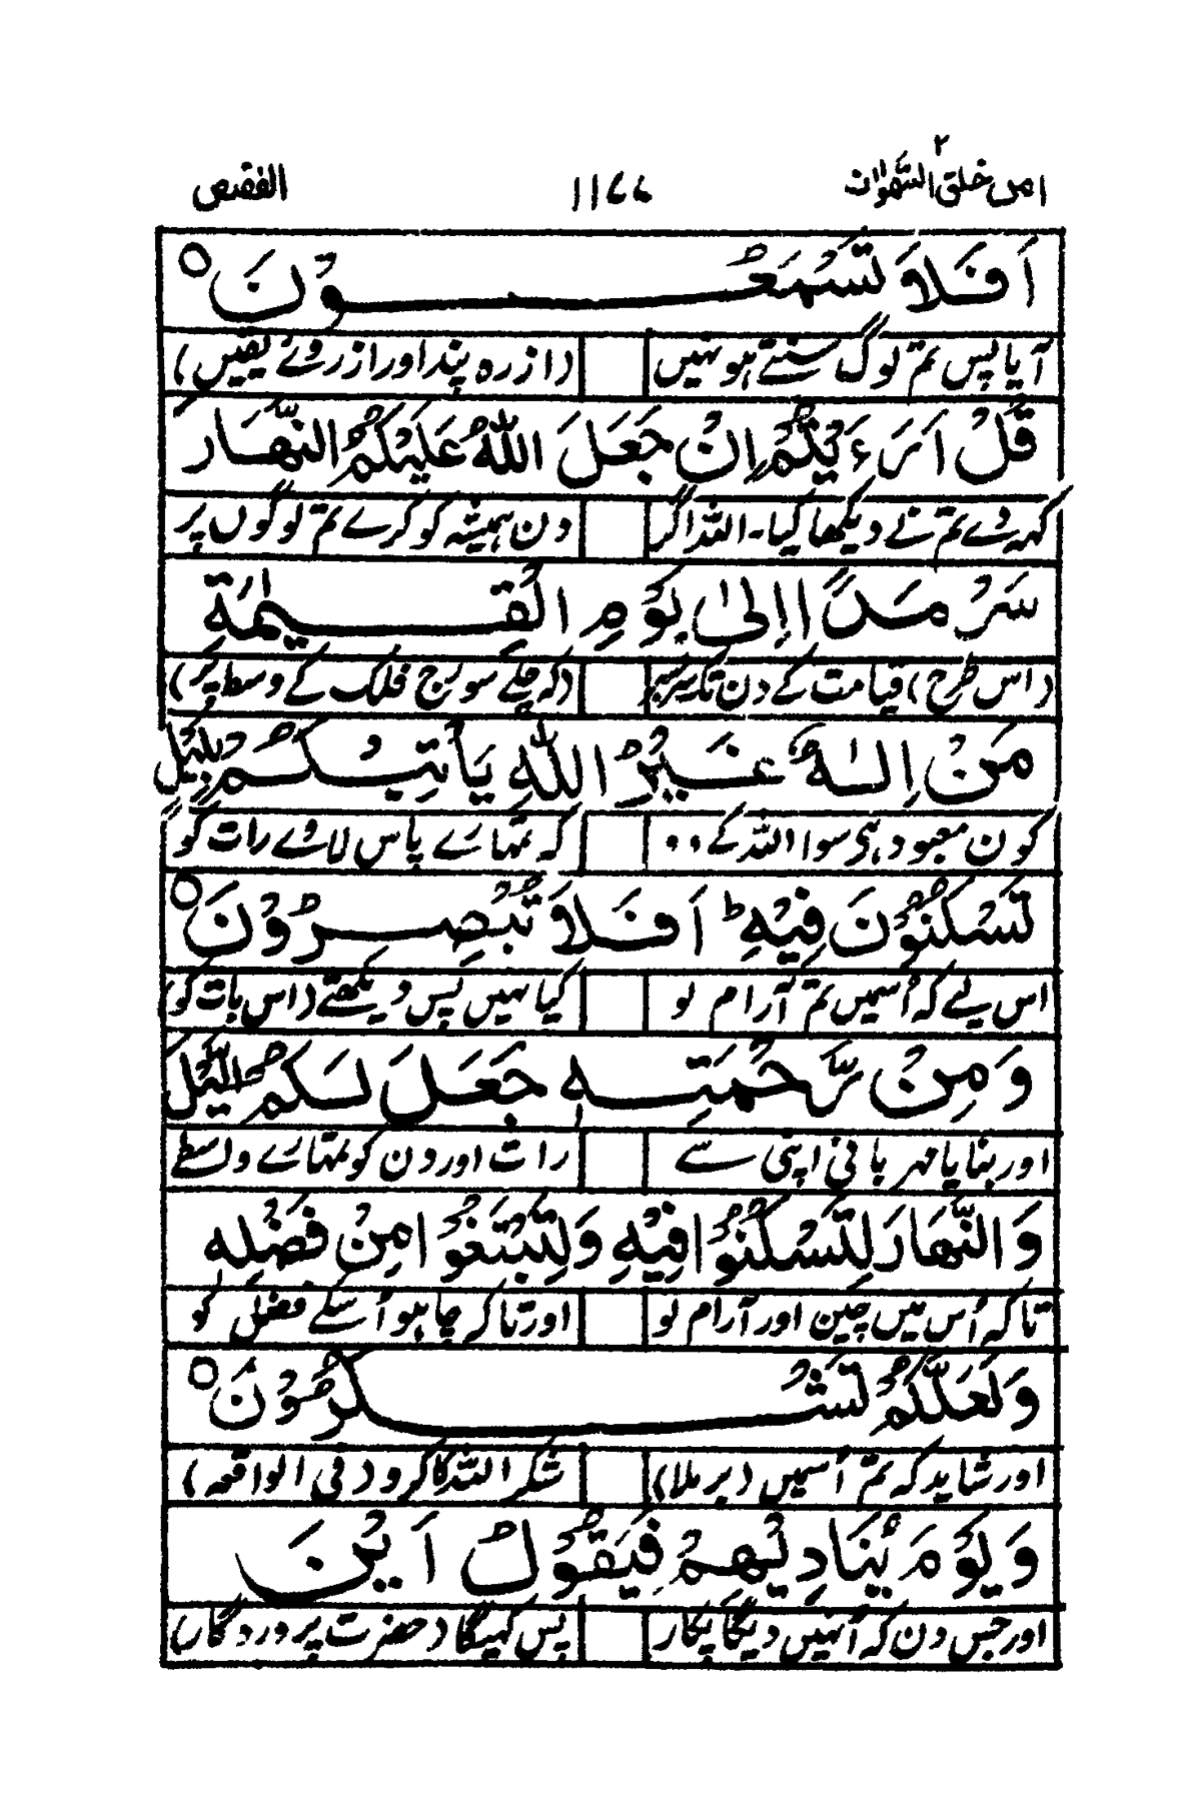 امن خلق السمٰوات ٢ ١١٧٧ القصص
اَفَلَا تَسْمَعُوْنَ ○
آیا پس تم لوگ سنتے ہو نہیں (از رہ پند اور از روئے یقیں)
قُلْ اَرَءَيْتُمْ اِنْ جَعَلَ اللّٰهُ عَلَيْكُمُ النَّهَارَ
کہہ دے تم نے دیکھا کیا۔ اللہ اگر دن ہمیشہ کو کرے تم لوگوں پر
سَرْمَدًا اِلٰى يَوْمِ الْقِيٰمَةِ
(اس طرح) قیامت کے دن تک سربسر (کہ چمکے سورج فلک کے وسط پر)
مَنْ اِلٰهٌ غَيْرُ اللّٰهِ يَاْتِيْكُمْ بِلَيْلٍ
کون معبود ہی سوا اللہ کے۰۰ کہ تمہارے پاس لاوے رات کو
تَسْكُنُوْنَ فِيْهِ ؕ اَفَلَا تُبْصِرُوْنَ ○
اس لیے کہ اُسمیں تم آرام لو کیا نہیں پس دیکھتے (اس بات کو)
وَمِنْ رَّحْمَتِهٖ جَعَلَ لَكُمُ الَّيْلَ
اور بنایا مہربانی اپنی سے رات اور دن کو تمہارے واسطے
وَالنَّهَارَ لِتَسْكُنُوْا فِيْهِ وَلِتَبْتَغُوْا مِنْ فَضْلِهٖ
تاکہ اُس میں چین اور آرام لو اور تاکہ چاہو اُسکے فضل کو
وَلَعَلَّكُمْ تَشْكُرُوْنَ ○
اور شاید کہ تم اُسمیں (برملا) شکر اللہ کا کرو (فی الواقعہ)
وَيَوْمَ يُنَادِيْهِمْ فَيَقُوْلُ اَيْنَ
اور جس دن کہ اُنہیں دیگا پکار پس کہیگا (حضرت پروردگار)